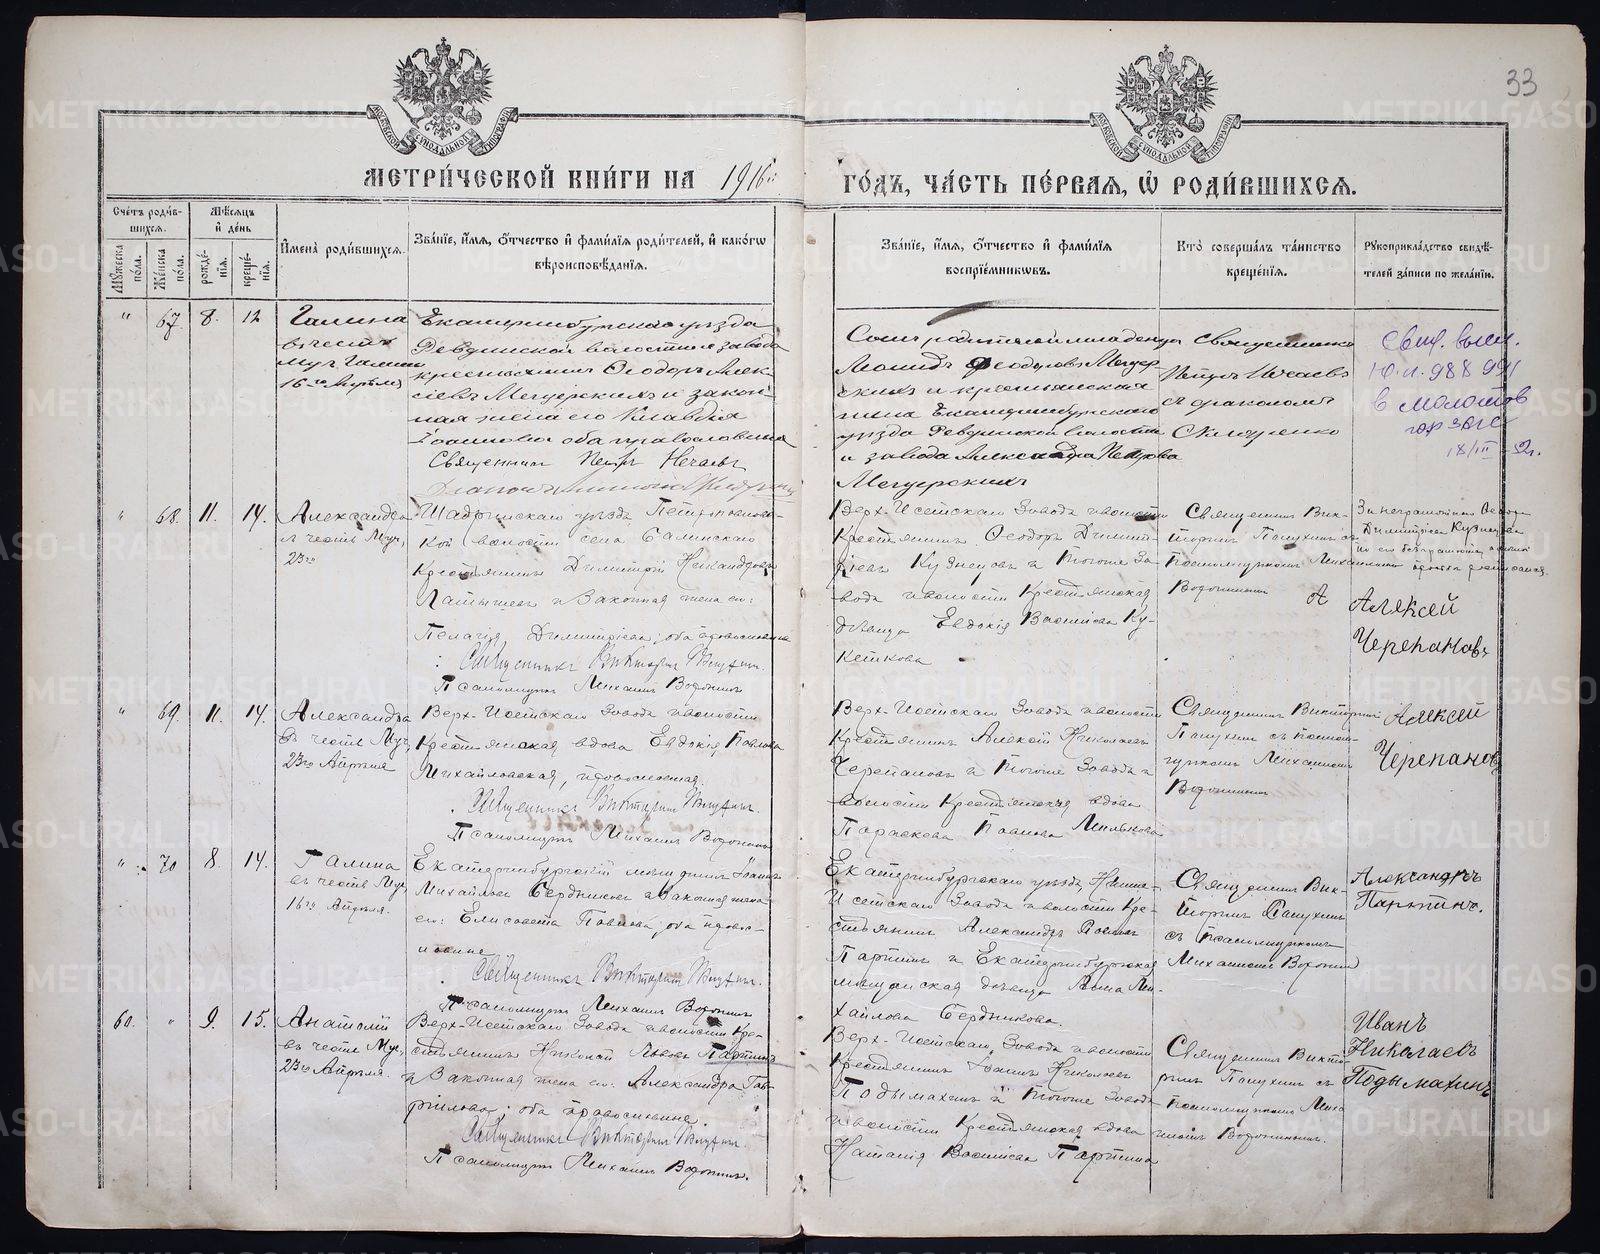 33
МОСКОВСКОЙ СѴНОДАЛЬНОЙ ТИПОГРАФІИ
МОСКОВСКОЙ СѴНОДАЛЬНОЙ ТИПОГРАФІИ
МЕТРИ́ЧЕСКОЙ КНИ́ГИ НА 1916
ГО́ДЪ, ЧА́СТЬ ПЕ́РВАЯ, Ѡ РОДИ́ВШИХСЯ.
Сче́тъ роди́в-
шихся.
Му́жеска по́ла.
Же́нска по́ла.
Мѣ́сяцъ и де́нь
рожде́-
нїя.
креще́-
нїя.
Имена̀ роди́вшихся.
Зва́нїе, и́мя, о́тчество и фами́лїя роди́телей, и како́гѡ
вѣроисповѣ́данїя.
Зва́нїе, и́мя, о́тчество и фами́лїя
воспрїе́мникѡвъ.
Кто̀ соверша́лъ та́инство
креще́нїя.
Рукоприкла́дство свидѣ́-
телей за́писи по жела́нїю.
" 67. 8. 12
Галина
в честь
муч. Галины
16го Апрѣля
Екатеринбургскаго уѣзда
Ревдинской волости и завода
крестьянинъ Ѳеодоръ Алек-
сіевъ Мегерскихъ и закон-
ная жена его Клавдія
Іоаннова оба православные
Священникъ Петръ Нечаевъ
Леонидъ Ѳеодоровъ Мегер-
скихъ и крестьянская
жена Екатеринбургскаго
уѣзда Ревдинской волости
и завода Александра Петрова
Мегерскихъ
Священникъ
Петръ Нечаевъ
съ діакономъ
Свид. выд.
988 991
в Молотов
гор загс
18/III
" 68. 11. 14.
Александра
въ честь Муч.
23го
Шадринскаго уѣзда Петропавловс-
кой волости села
Крестьянинъ Димитрій Никандровъ
Латышевъ и Законная жена его:
Пелагія Димитріева; оба православные
Священникъ Викторинъ Пичугинъ
Псаломщикъ Михаилъ Воронинъ
Верх-Исетскаго Завода и волости
Крестьянинъ Ѳеодоръ Димит-
ріевъ Кузнецовъ и тогоже За-
вода и волости Крестьянская
дѣвица Евдокія Васильева Ку-
Священникъ Вик-
торинъ Пичугинъ съ
Псаломщикомъ Михаиломъ
За неграмотнаго Ѳеодора
Димитріева Кузнецова
по его безграмотству
А Алексей
Черепановъ
" 69. 11. 14.
Александра
въ честь Муч.
23го Апрѣля
Верх-Исетскаго Завода и волости
Крестьянская вдова Евдокія Павлова
Михайловская, православная.
Священникъ Викторинъ Пичугинъ.
Псаломщикъ Михаилъ Воронинъ
Верх-Исетскаго Завода и волости
Крестьянинъ Алексій Николаевъ
Черепановъ и тогоже Завода и
волости Крестьянская вдова
Параскева Павлова
Священникъ Викторинъ
Пичугинъ съ псалом-
щикомъ Михаиломъ
Алексей
Черепановъ
" 70 8. 14.
Галина
въ честь Муч.
16го Апрѣля.
Екатеринбургскій мѣщанинъ Іоаннъ
Михайловъ Бердниковъ и Законная жена
его: Елисавета Павлова; оба правос-
лавные
Священникъ Викторинъ Пичугинъ.
Псаломщикъ Михаилъ Воронинъ
Екатеринбургскаго уѣзда, Нижне-
Исетскаго Завода и волости Кре-
стьянинъ Александръ
Партинъ и Екатеринбургская
мѣщанская дѣвица Анна Ми-
хайлова Бердникова.
Священникъ Вик-
торинъ Пичугинъ
съ псаломщикомъ
Михаиломъ
Александръ
Партинъ.
60. " 9. 15.
Анатолій
въ честь Муч.
23го Апрѣля.
Верх-Исетскаго Завода и волости Кре-
стьянинъ Николай Львовъ Партинъ
и Законная жена его: Александра Гав-
ріилова; оба православные.
Священникъ Викторинъ Пичугинъ.
Псаломщикъ Михаилъ Воронинъ.
Верх-Исетскаго Завода и волости
Крестьянинъ Іоаннъ Николаевъ
Подымахинъ и тогоже Завода
и волости Крестьянская вдова
Наталія Васильева Партина
Священникъ Викто-
ринъ Пичугинъ съ
псаломщикомъ Миха-
иломъ
Иванъ
Николаевъ
Подымахинъ
METRIKI.GASO-URAL.RU